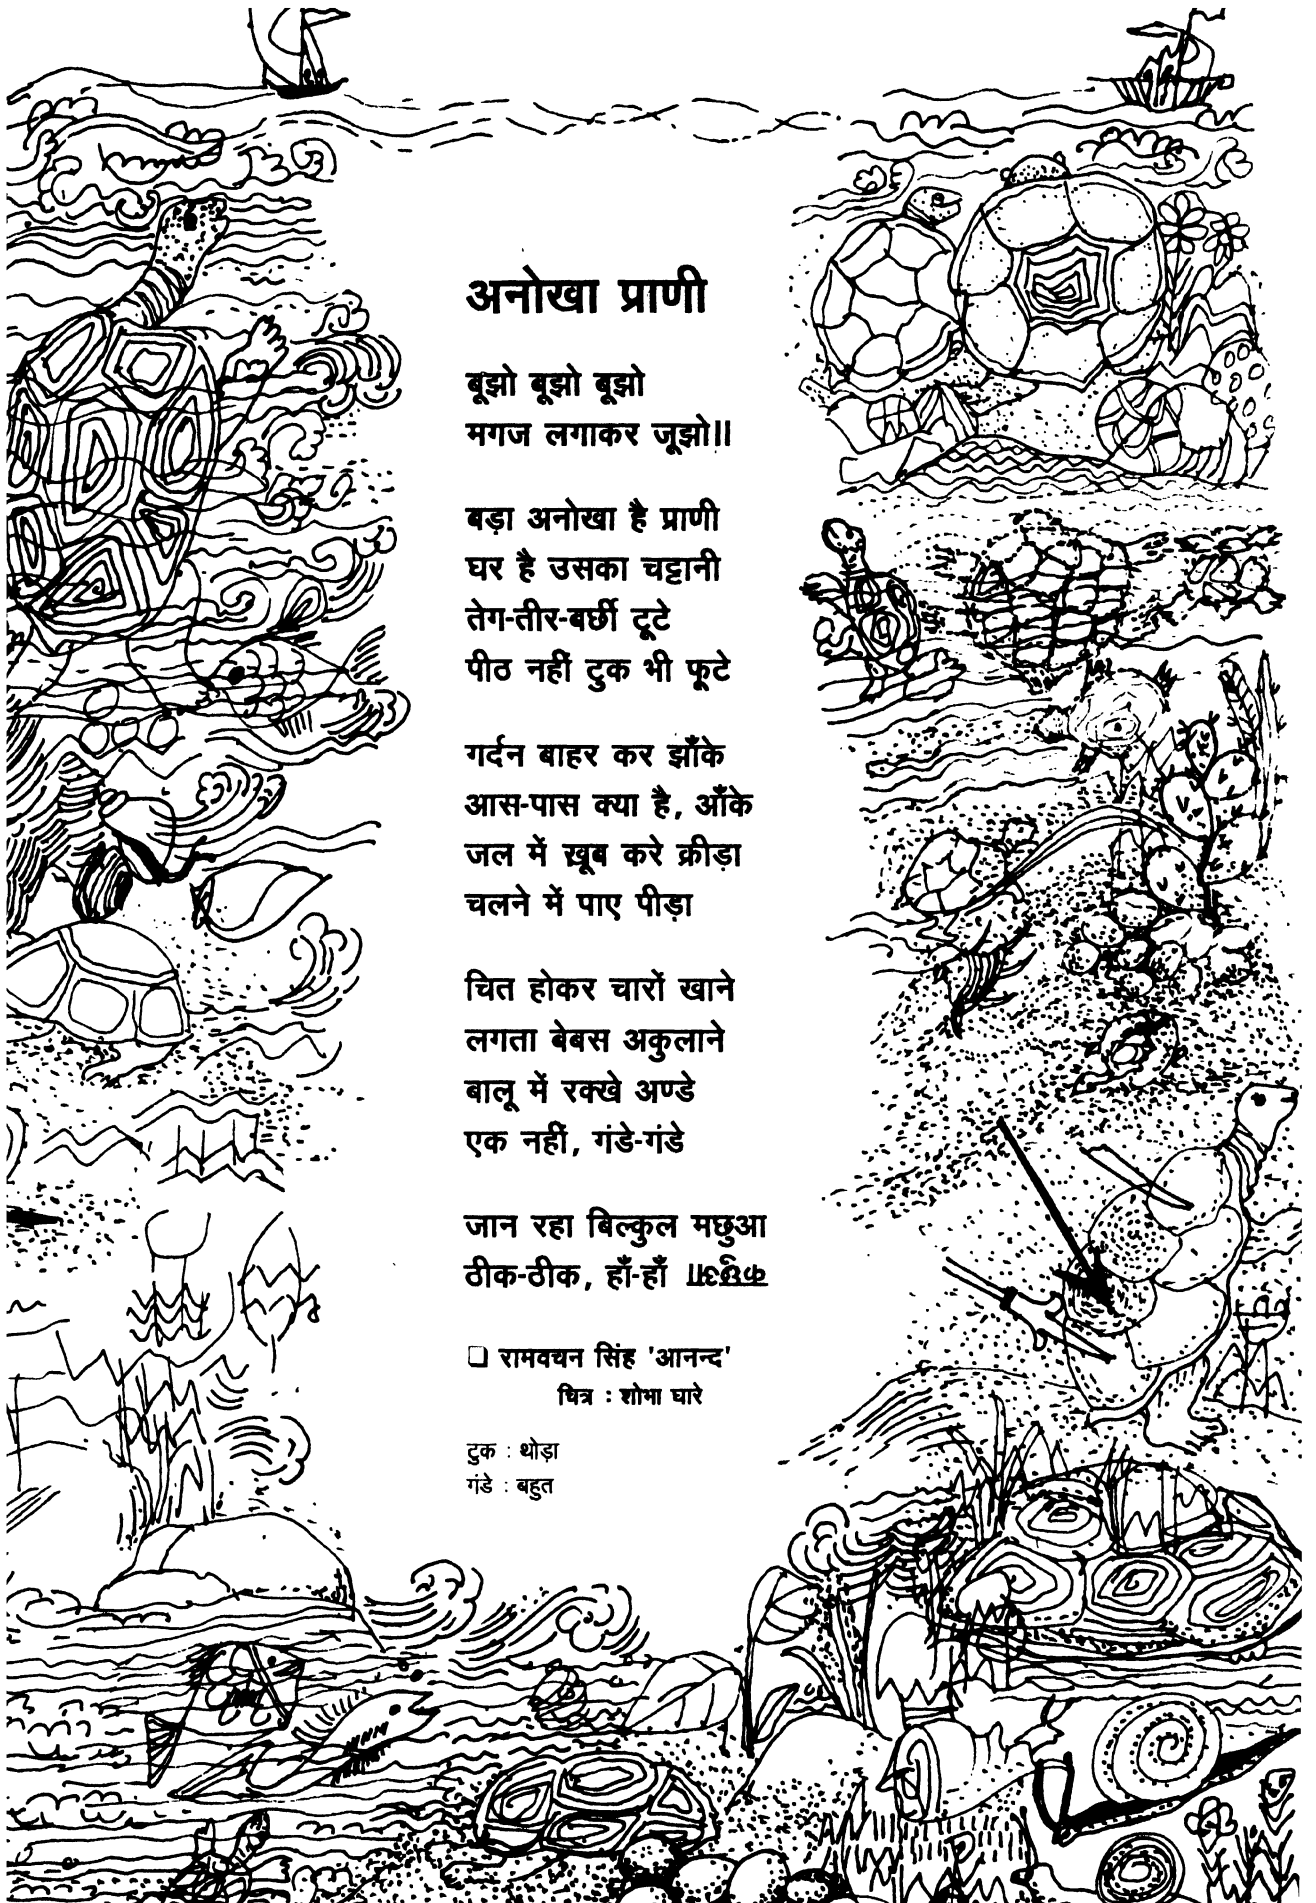 अनोखा प्राणी
बूझो बूझो बूझो
मगज लगाकर जूझो॥
बड़ा अनोखा है प्राणी
घर है उसका चट्टानी
तेग-तीर-बर्छी टूटे
पीठ नहीं टुक भी फूटे
गर्दन बाहर कर झाँके
आस-पास क्या है, आँके
जल में ख़ूब करे क्रीड़ा
चलने में पाए पीड़ा
चित होकर चारों खाने
लगता बेबस अकुलाने
बालू में रक्खे अण्डे
एक नहीं, गंडे-गंडे
जान रहा बिल्कुल मछुआ
ठीक-ठीक, हाँ-हाँ कछुआ
❑ रामवचन सिंह 'आनन्द'
चित्र : शोभा घारे
टुक : थोड़ा
गंडे : बहुत